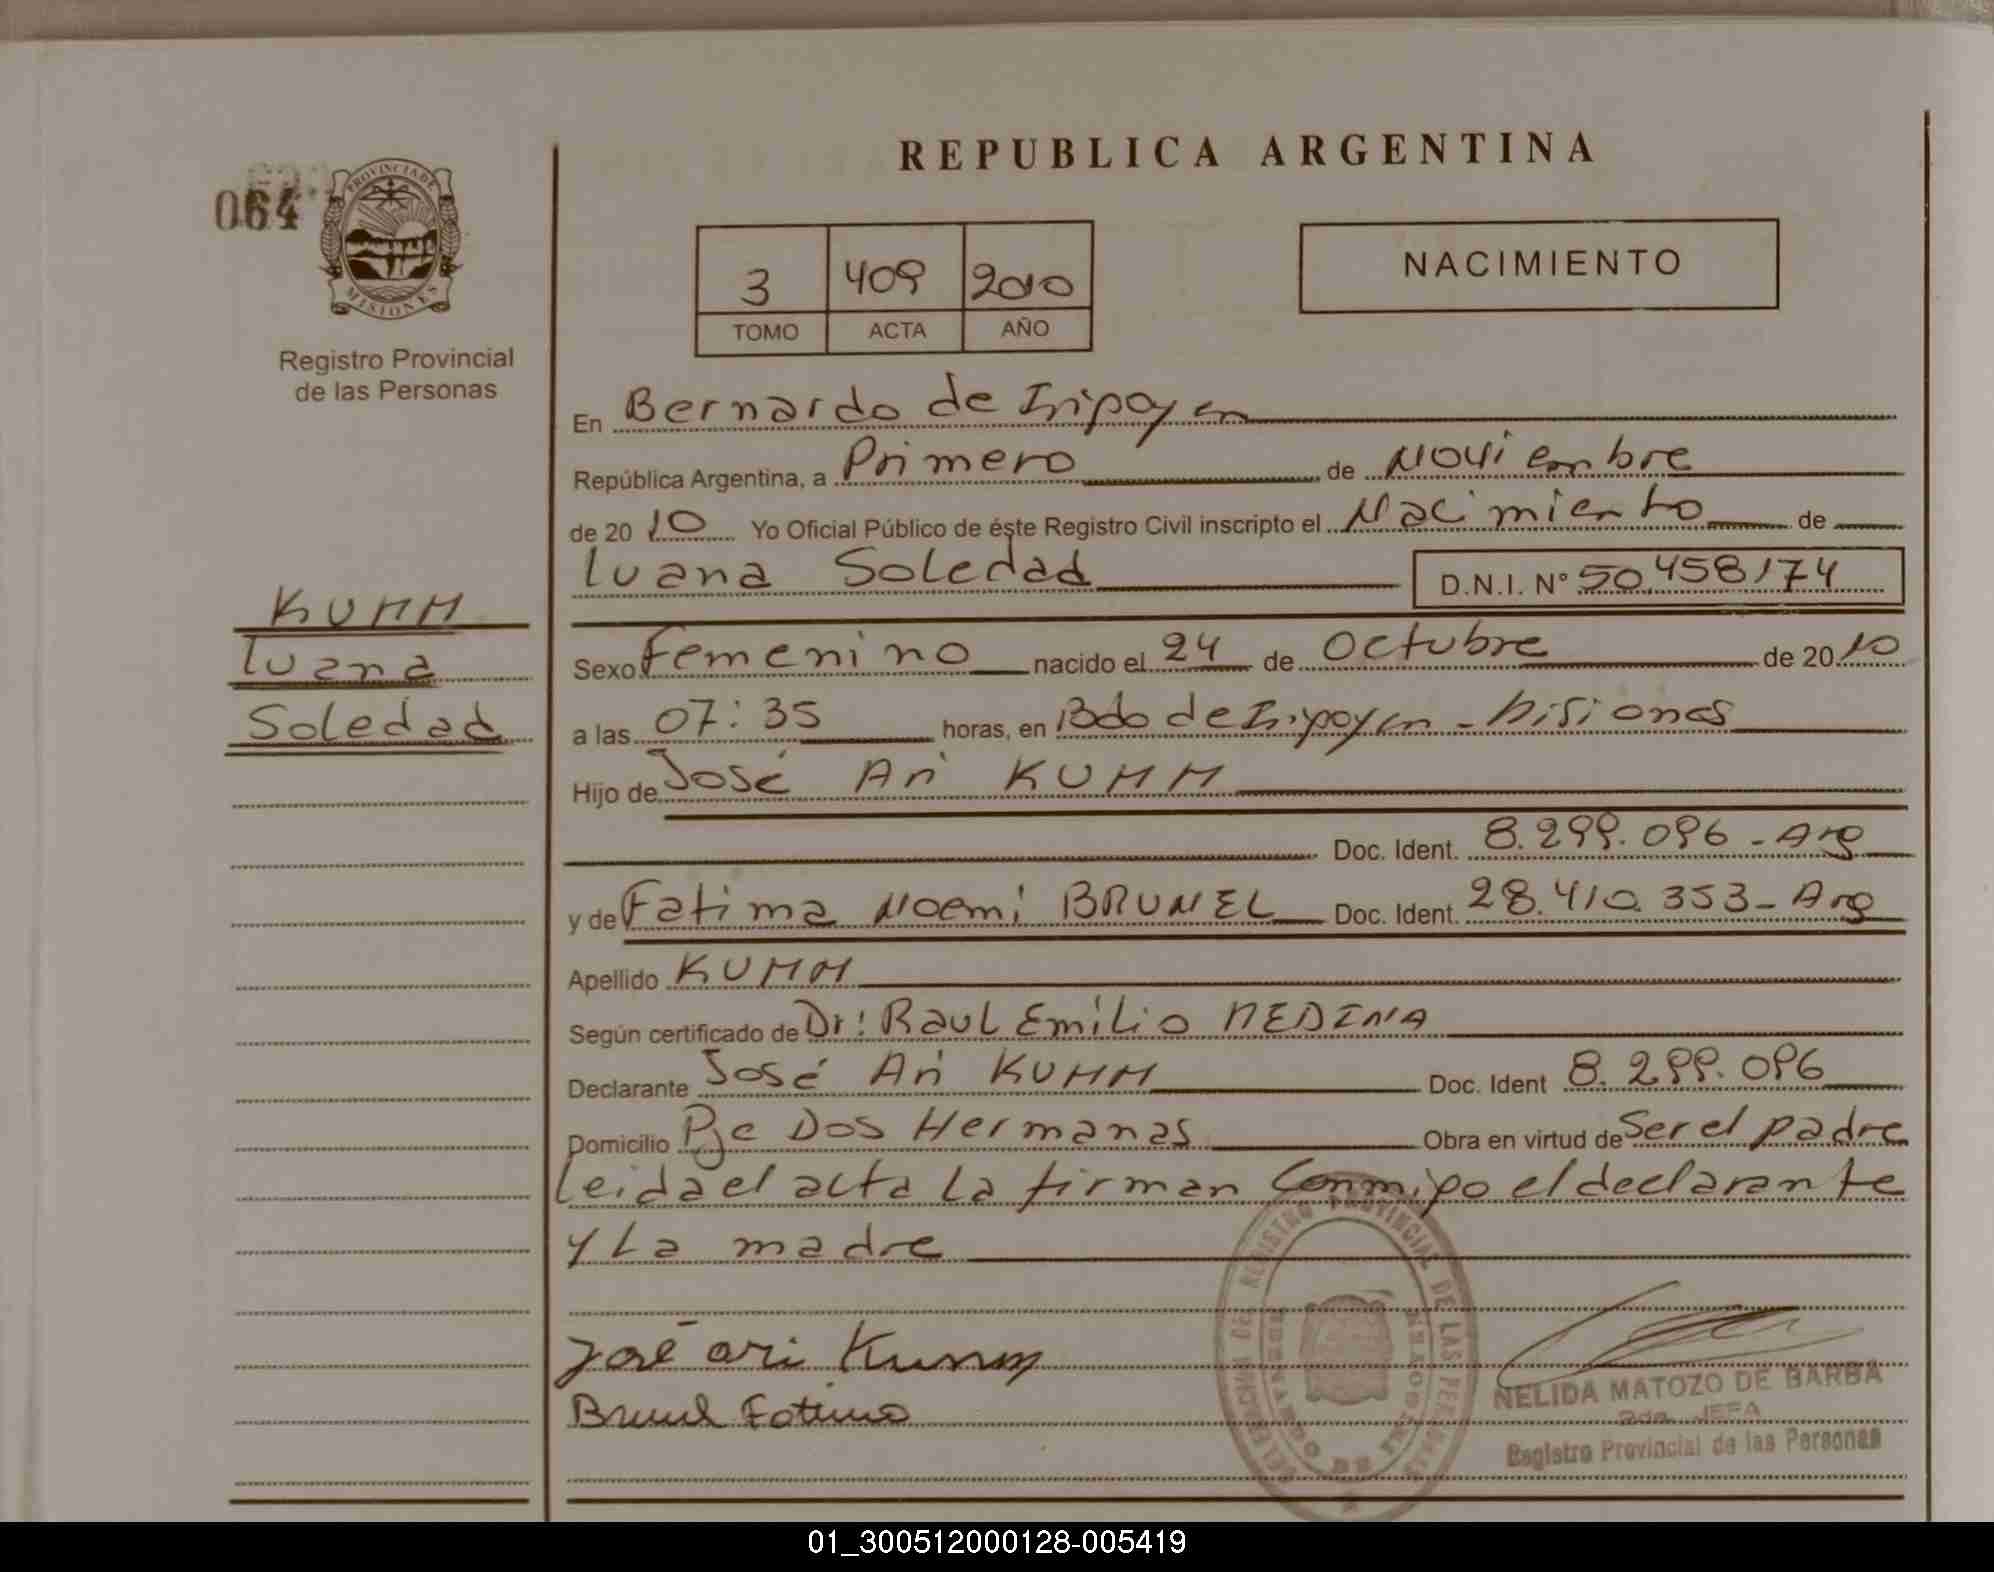 REPUBLICA ARGENTINA
064
PROVINCIA DE
MISIONES
Registro Provincial
de las Personas
3 409 2010
TOMO ACTA AÑO
NACIMIENTO
En Bernardo de Irigoyen
República Argentina, a Primero de Noviembre
de 20 10 Yo Oficial Público de éste Registro Civil inscripto el Nacimiento de
Luana Soledad D.N.I. N° 50.458174
KUMM
Luana
Soledad
Sexo Femenino nacido el 24 de Octubre de 20 10
a las 07:35 horas, en Bdo de Irigoyen - Misiones
Hijo de José Ari KUMM
Doc. Ident. 8.299.096 - Arg
y de Fatima Noemi BRUNEL Doc. Ident. 28.410.353 - Arg
Apellido KUMM
Según certificado de Dr: Raul Emilio MEDINA
Declarante José Ari KUMM Doc. Ident 8.299.096
Domicilio Pje Dos Hermanas Obra en virtud de Ser el padre
Leida el acta la firman Conmigo el declarante
y La madre
José ari Kumm
Brunel Fatima
REGISTRO PROVINCIAL DE LAS PERSONAS
BERNARDO DE IRIGOYEN
NELIDA MATOZO DE BARBA
2da. JEFA
Registro Provincial de las Personas
01_300512000128-005419